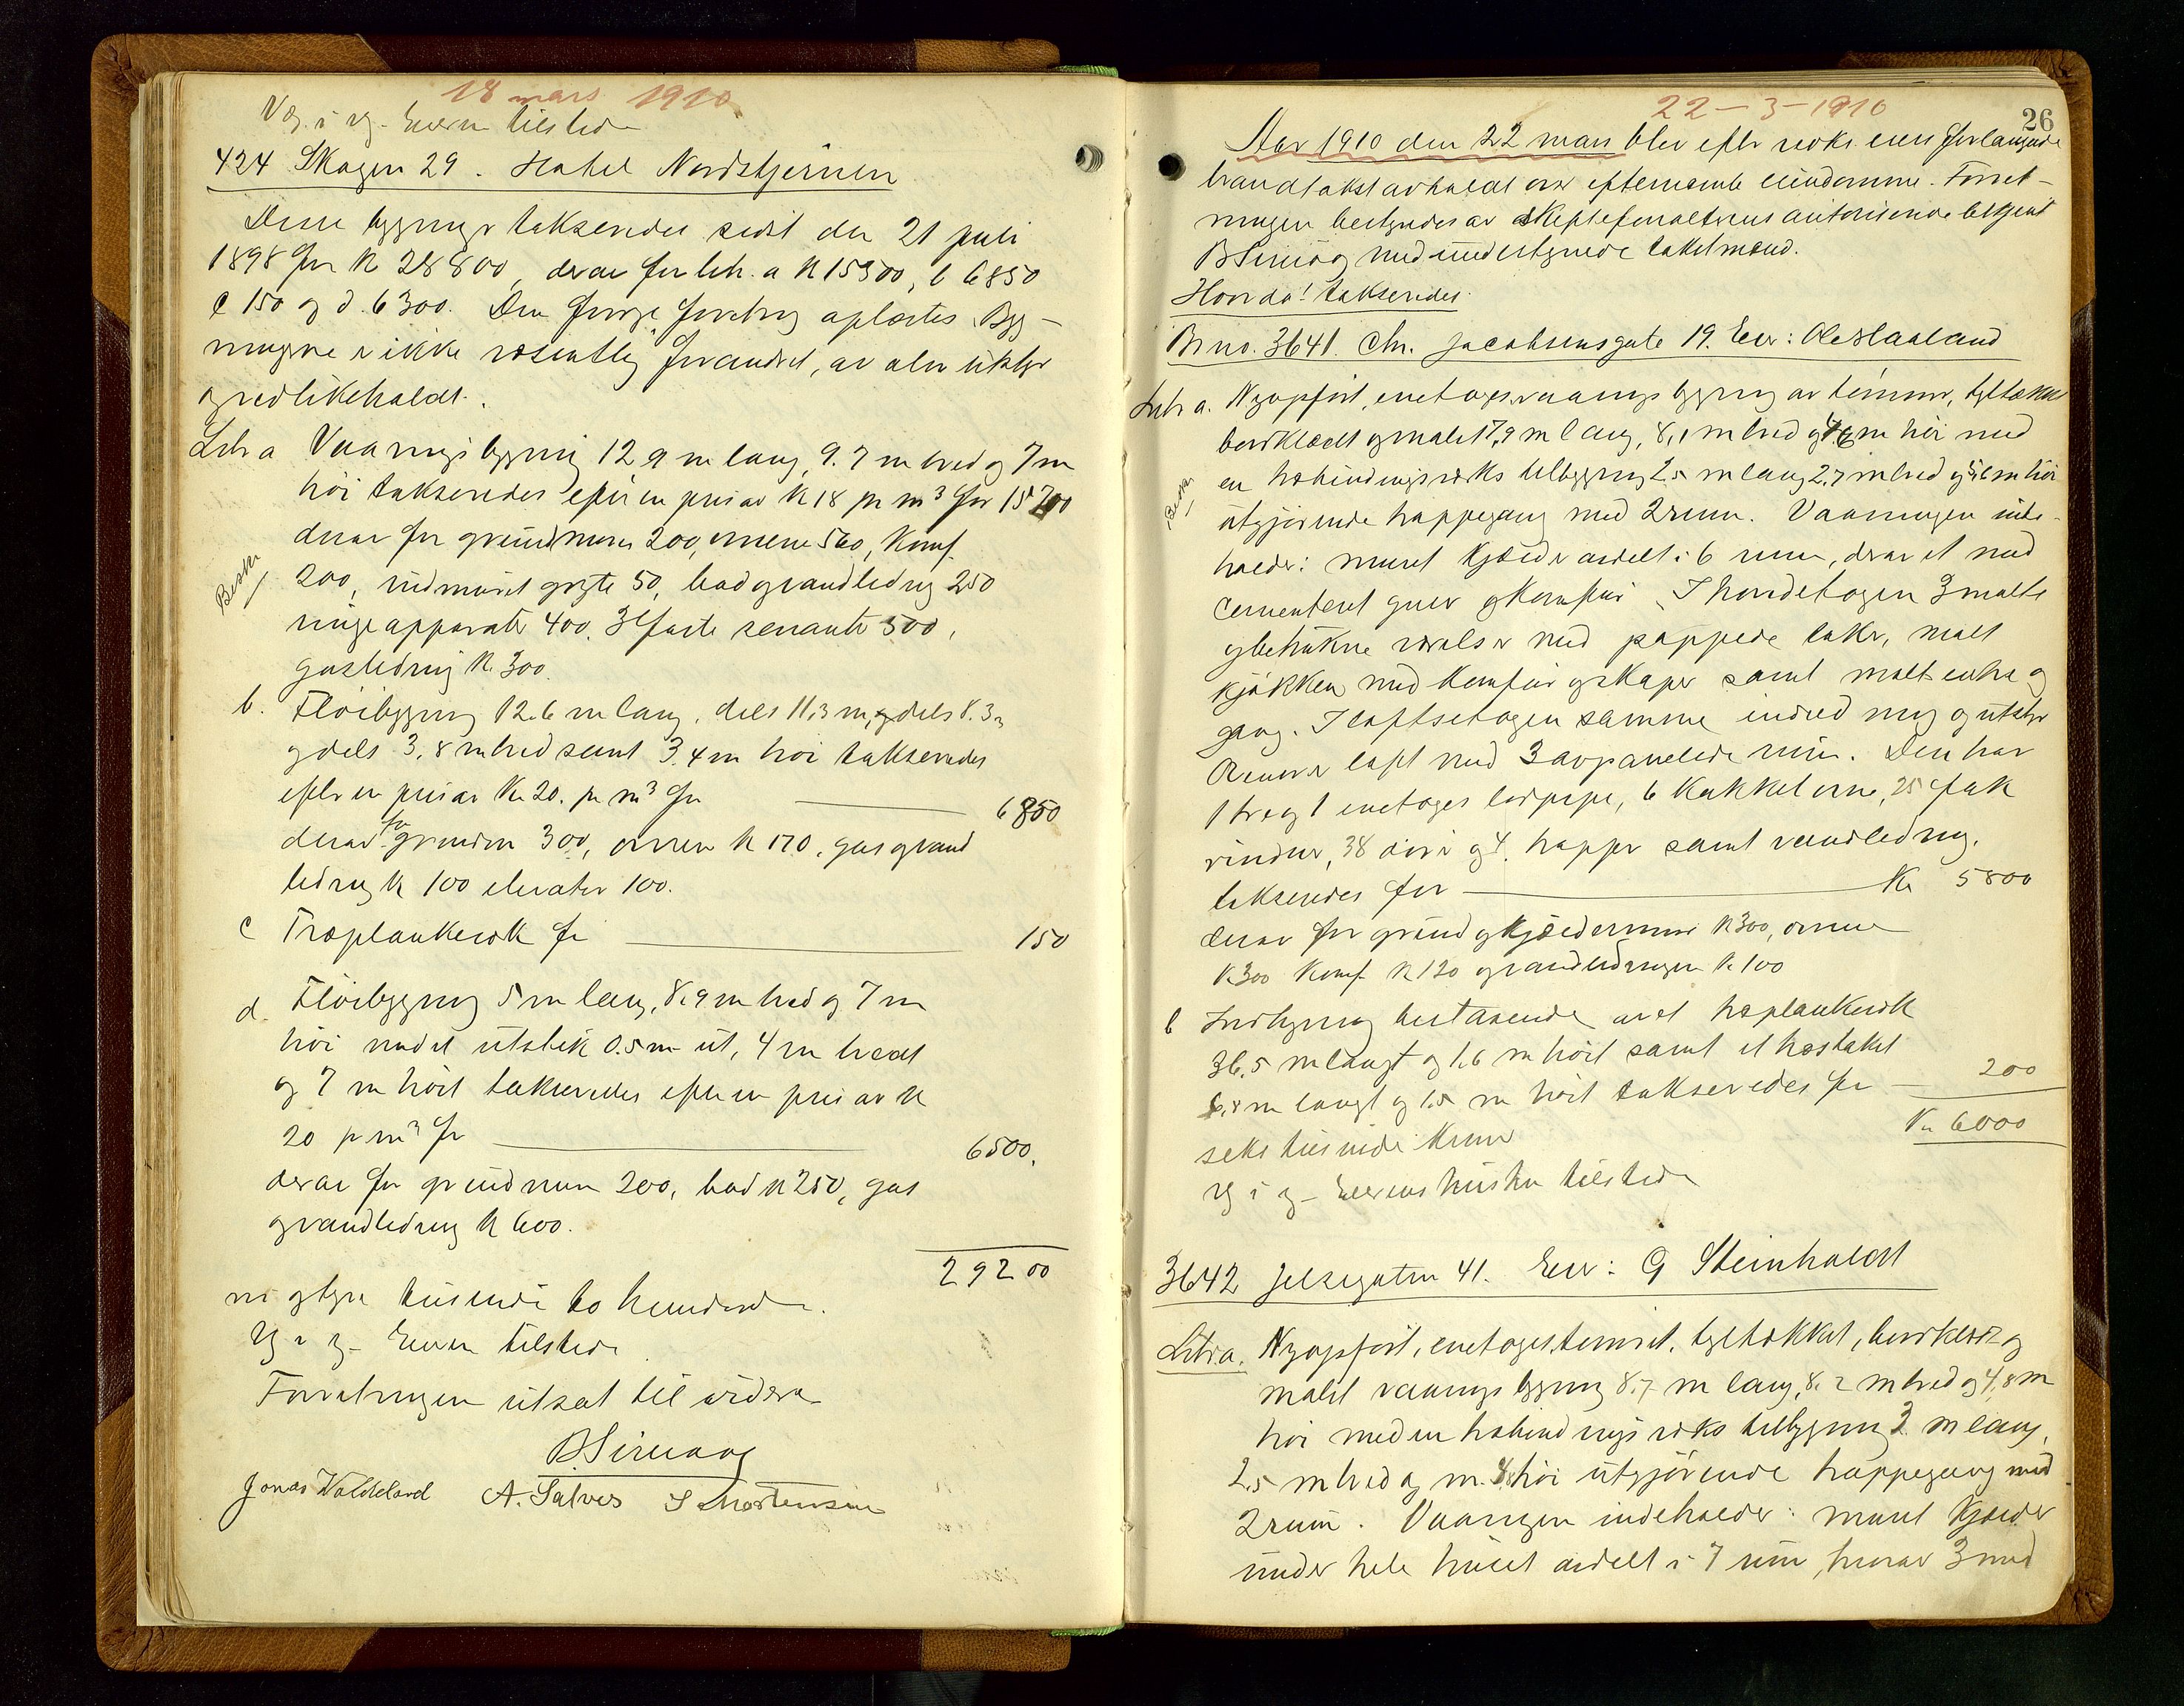 18 mars 1910
V. g. i g. Eieren tilstede
424 Skagen 29. Hotel Nordstjernen
Disse bygninger takseredes sidst den 21 juli
1898 for K 28800, derav for litr. a K 15500, b 6850
c 150 og d. 6300. Den forrige forretning oplæstes. Byg-
ningerne er ikke væsentlig forandret, av alm utstyr
og vedlikeholdt.
Litr a Vaaningsbygning 12.9 m lang, 9.7 m bred og 7 m
høi takseredes efter en pris av K 18 pr m³ for 15700
derav for grundmuren 200, ovnene 560, Komf.
200, indmuret gryte 50, bad og vandledning 250
ringeapparater 400. 3 faste servanter 300,
gasledning K 300.
b. Fløibygning 12.6 m lang, dels 11,3 m, og dels 8.3 m
og dels 3,8 m bred samt 3.4 m høi takseredes
efter en pris av Kr 20. pr m³ for 6850
derav for grundm 300, ovnen K 170, gas og vand
ledning K 100 elevator 100.
c Træplankerok for 150
d. Fløibygning 5 m lang, 8,9 m bred og 7 m
høi med et utstik 0.5 m ut, 4 m bredt
og 7 m høit takseredes efter en pris av K
20 pr m³ for 6500.
derav for grundmur 200, bad K 250, gas
og vandledning K 600.
29200
ni og tyve tusinde to hundrede.
V g i g- Eieren tilstede
Forretningen utsat til videre
B Simong
Jonas Waldeland A. Salves S Mortensen
22-3-1910
26
Aar 1910 den 22 mars blev efter vedk. eiers forlangende
brandtakst avholdt over efternævnte eiendomme. Forret-
ningen bestyredes av skiftefor­valterens autoriserede betjent
B Simong med undertegnede takstmænd.
Hvorda! takseredes
Br no. 3641. Chr. Jacobsensgate 19. Eier: Ole Slaaland
Litr a. Nyopført, enetages vaaningsbygning av tømmer, tegltækket
bordklædt og malet 7,9 m lang, 8,1 m bred og 4,6 m høi med
en træbindingsverks tilbygning 2,5 m lang 2,7 m bred og 4,6 m høi
utgjørende trappegang med 2 rum. Vaaningen inde-
holder: muret kjælder avdelt i 6 rum, derav et med
cementeret gulv og Komfur. I hovedetagen 3 malte
og betrukne værelser med pappede takr, malt
kjøkken med komfur og skaper samt malt entre og
gang. I loftsetagen samme indredning og utstyr
Øverst er loft med 3 avpanelede rum. Den har
1 tre og 1 enetages ledpipe, 6 kakkelovne, 25 fak
vinduer, 38 dører og 4 trapper samt vandledning,
takseredes for Kr 5800
derav for grund og kjældermur K 300, ovnene
K 300 Komf. K 120 og vandledningen K 100
b Indhegning bestaaende av et træplankerok
36,5 m langt og 1,6 m høit samt et træstaket
6,8 m langt og 1,5 m høit takseredes for 200
Kr 6000
seks tusinde kroner
V g i g- Eierens hustru tilstede
3642 Jelsegaten 41. Eier: G Steinholdt
Litr. a. Nyopført, enetages tømret, tegltækket, bordklædt og
malet vaaningsbygning 8,7 m lang, 8,2 m bred og 4,8 m
høi med en træbindingsverks tilbygning 3 m lang,
2,5 m bred og m. 4,8 høi utgjørende trappegang med
2 rum. Vaaningen indeholder: muret kjælder
under hele huset avdelt i 7 rum, hvorav 3 med